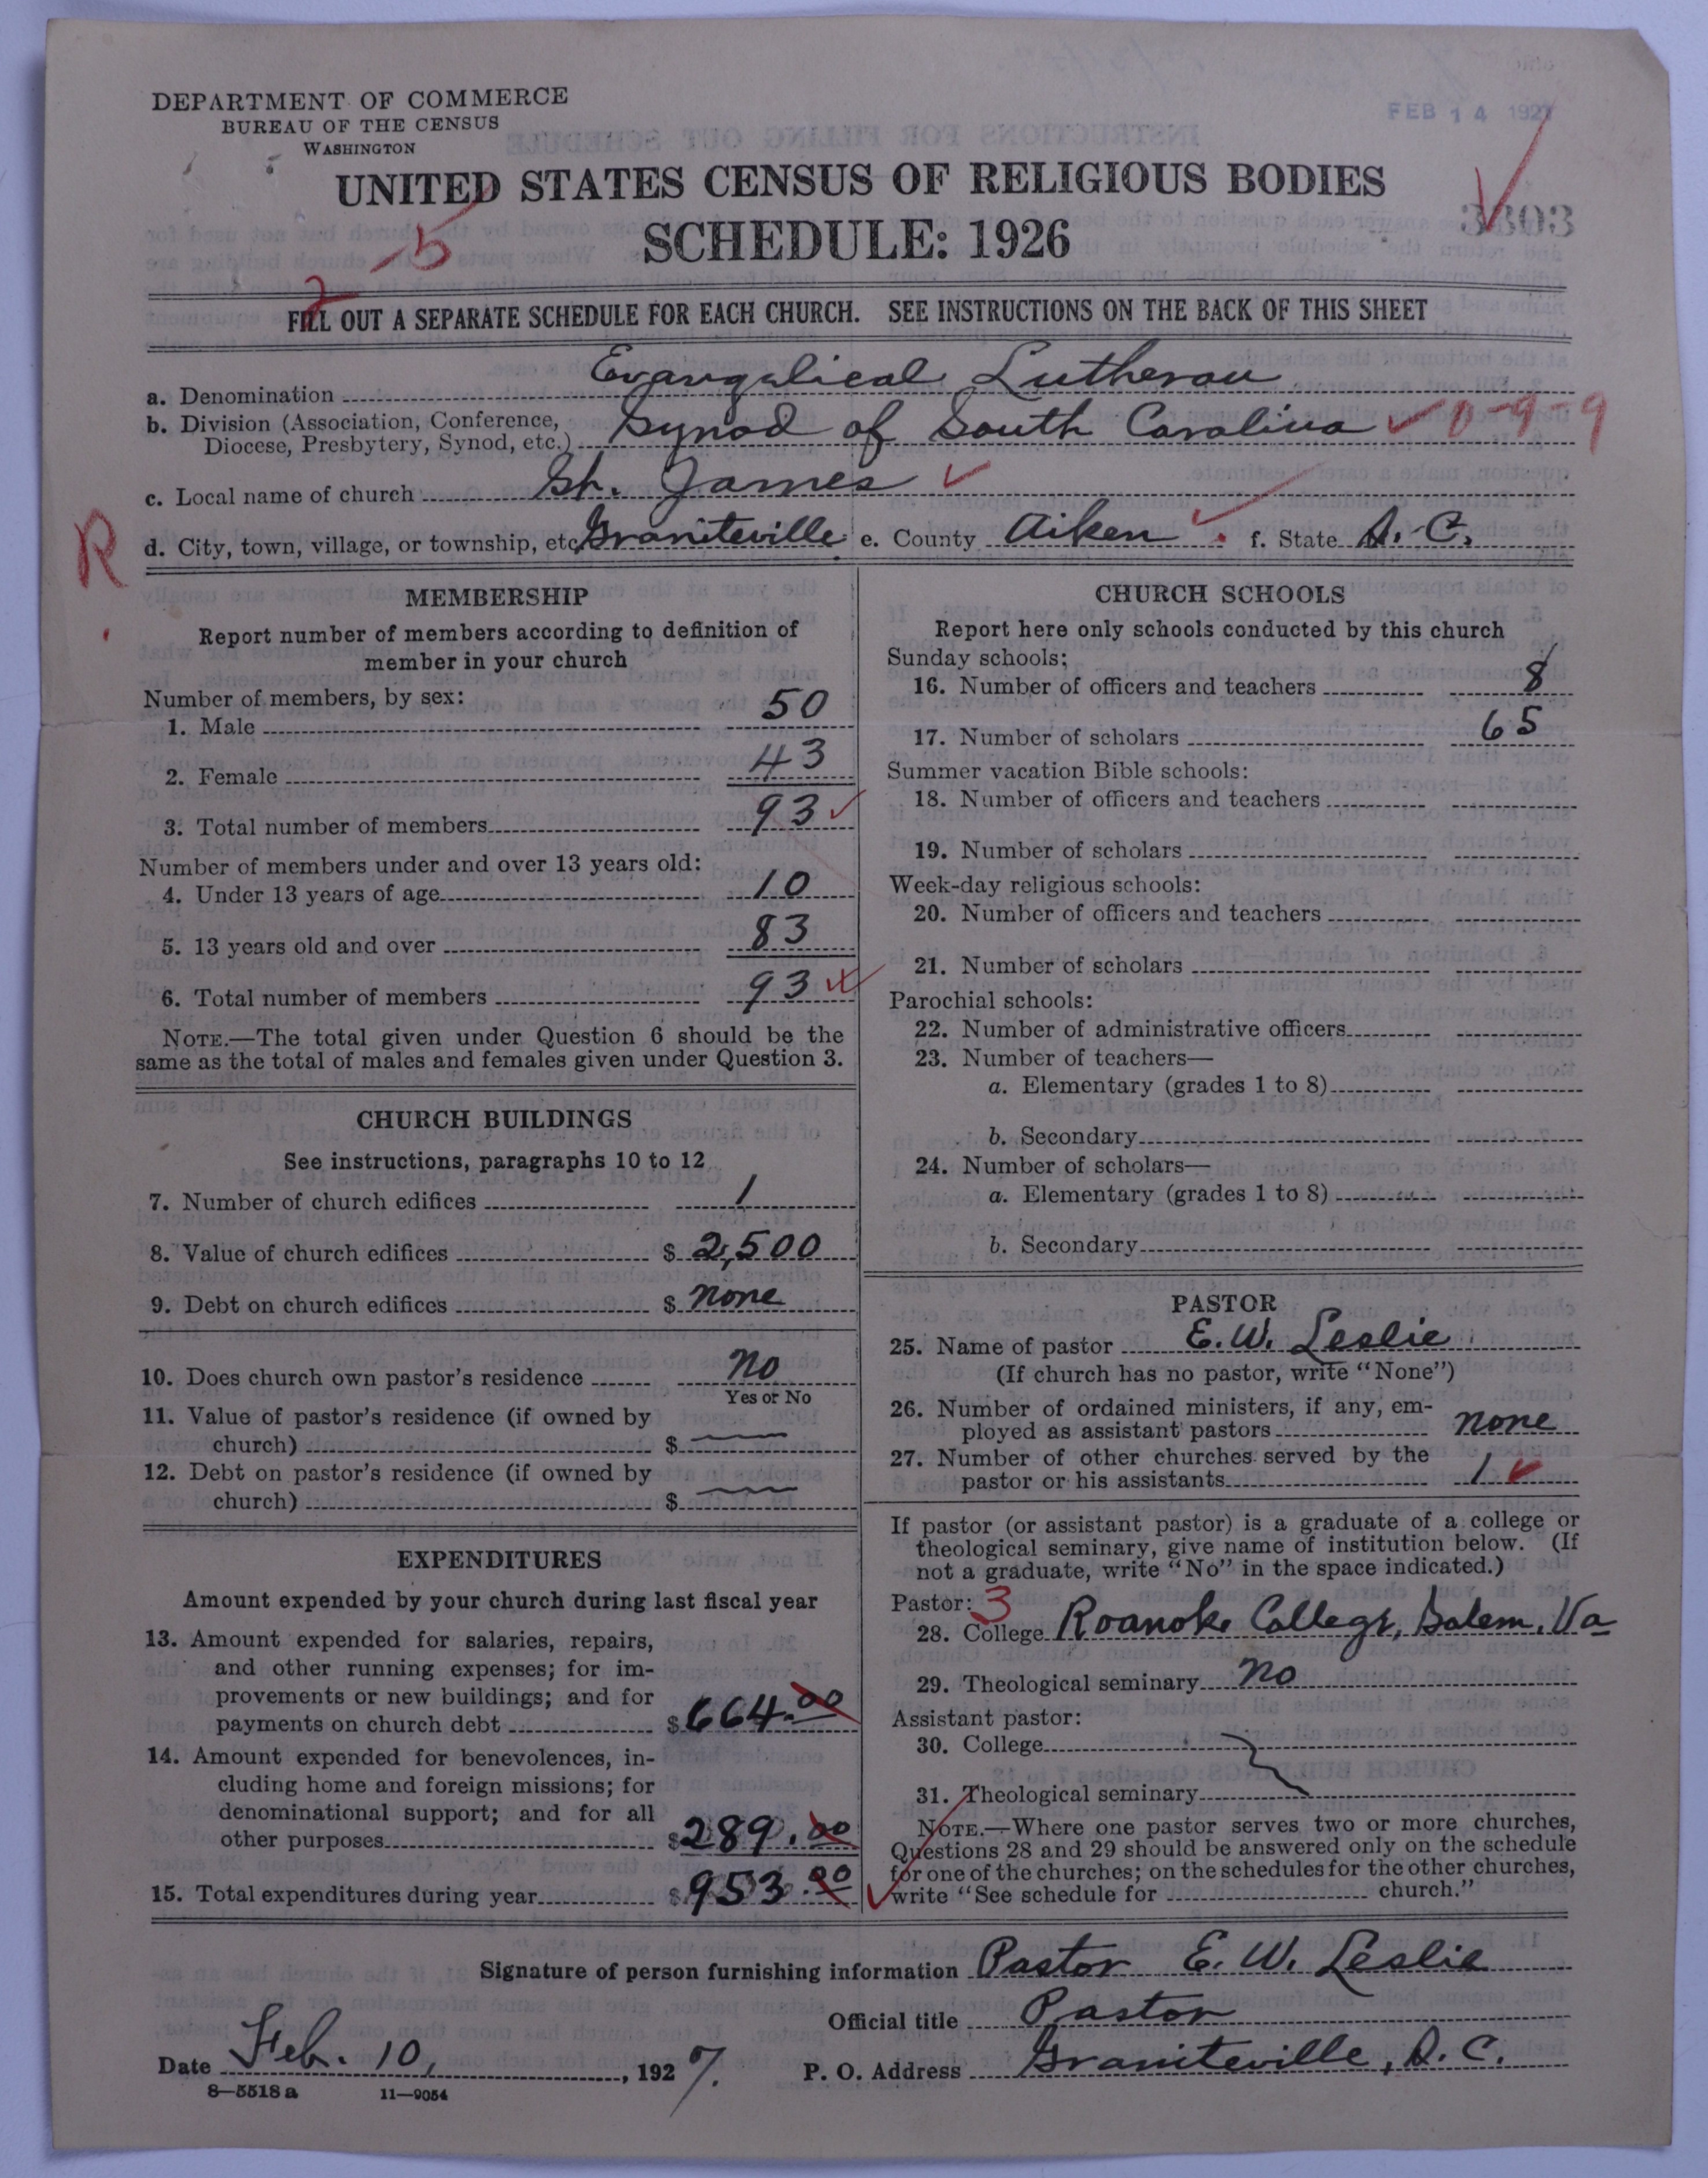 DEPARTMENT OF COMMERCE
BUREAU OF THE CENSUS
WASHINGTON
FEB 14 1927
UNITED STATES CENSUS OF RELIGIOUS BODIES
SCHEDULE: 1926
5
2
FILL OUT A SEPARATE SCHEDULE FOR EACH CHURCH. SEE INSTRUCTIONS ON THE BACK OF THIS SHEET
a. Denomination Evangelical Lutheran
b. Division (Association, Conference, Diocese, Presbytery, Synod, etc.) Synod of South Carolina 0-9-9
c. Local name of church St. James
R
d. City, town, village, or township, etc. Graniteville e. County Aiken f. State S. C.
MEMBERSHIP
Report number of members according to definition of
member in your church
Number of members, by sex:
1. Male 50
2. Female 43
3. Total number of members 93
Number of members under and over 13 years old:
4. Under 13 years of age 10
5. 13 years old and over 83
6. Total number of members 93
NOTE.—The total given under Question 6 should be the
same as the total of males and females given under Question 3.
CHURCH BUILDINGS
See instructions, paragraphs 10 to 12
7. Number of church edifices 1
8. Value of church edifices $ 2,500
9. Debt on church edifices $ none
10. Does church own pastor's residence no
Yes or No
11. Value of pastor's residence (if owned by
church) $
12. Debt on pastor's residence (if owned by
church) $
EXPENDITURES
Amount expended by your church during last fiscal year
13. Amount expended for salaries, repairs,
and other running expenses; for im-
provements or new buildings; and for
payments on church debt $ 664.00
14. Amount expended for benevolences, in-
cluding home and foreign missions; for
denominational support; and for all
other purposes $ 289.00
15. Total expenditures during year $ 953.00
CHURCH SCHOOLS
Report here only schools conducted by this church
Sunday schools:
16. Number of officers and teachers 8
17. Number of scholars 65
Summer vacation Bible schools:
18. Number of officers and teachers
19. Number of scholars
Week-day religious schools:
20. Number of officers and teachers
21. Number of scholars
Parochial schools:
22. Number of administrative officers
23. Number of teachers—
a. Elementary (grades 1 to 8)
b. Secondary
24. Number of scholars—
a. Elementary (grades 1 to 8)
b. Secondary
PASTOR
25. Name of pastor E. W. Leslie
(If church has no pastor, write "None")
26. Number of ordained ministers, if any, em-
ployed as assistant pastors none
27. Number of other churches served by the
pastor or his assistants 1
If pastor (or assistant pastor) is a graduate of a college or
theological seminary, give name of institution below. (If
not a graduate, write "No" in the space indicated.)
Pastor: 3
28. College Roanoke College, Salem, Va
29. Theological seminary no
Assistant pastor:
30. College
31. Theological seminary
NOTE.—Where one pastor serves two or more churches,
Questions 28 and 29 should be answered only on the schedule
for one of the churches; on the schedules for the other churches,
write "See schedule for church."
Signature of person furnishing information Pastor E. W. Leslie
Official title Pastor
Date Feb. 10, 1927. P. O. Address Graniteville, S. C.
8—5518 a 11—9054